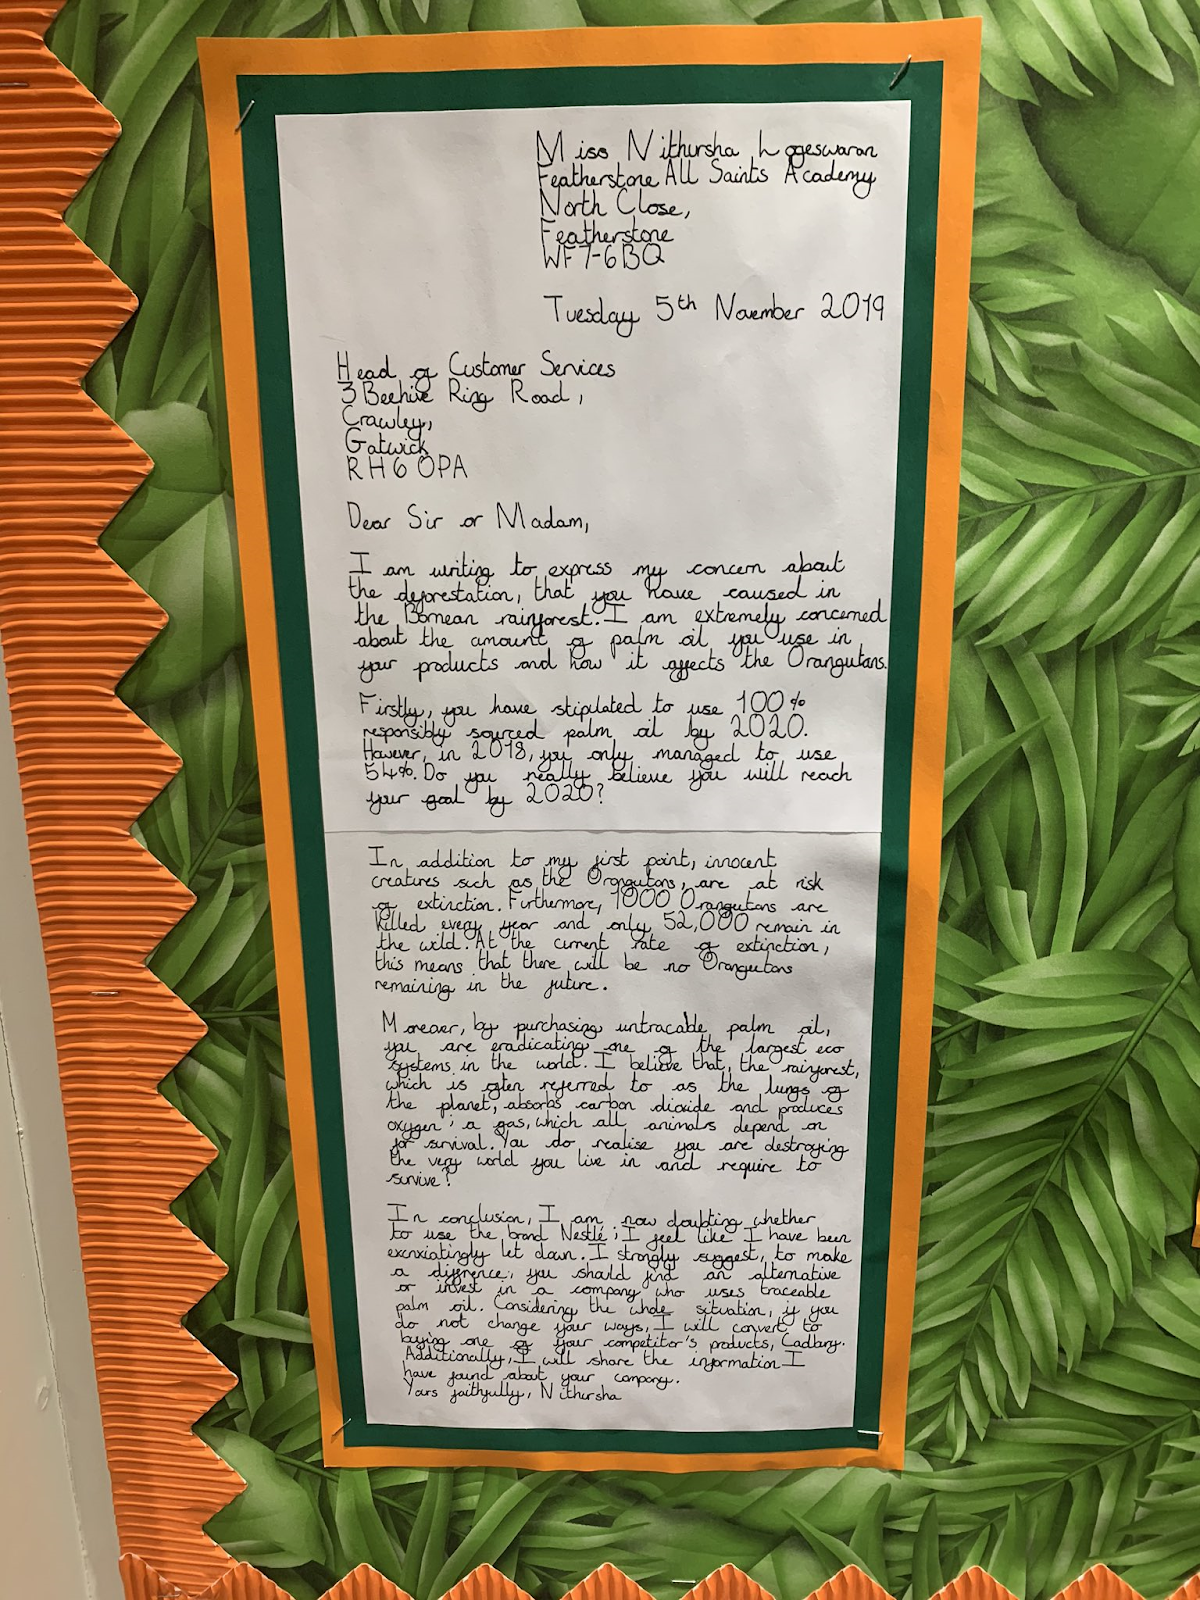 Miss Nithursha Logeswaran
Featherstone All Saints Academy
North Close,
Featherstone
WF7-6BQ
Tuesday 5th November 2019
Head of Customer Services
3 Beehive Ring Road,
Crawley,
Gatwick
RH6 0PA
Dear Sir or Madam,
I am writing to express my concern about
the deforestation, that you have caused in
the Bornean rainforest. I am extremely concerned
about the amount of palm oil you use in
your products and how it affects the Orangutans.
Firstly, you have stiplated to use 100%
responsibly sourced palm oil by 2020.
However, in 2018, you only managed to use
54%. Do you really believe you will reach
your goal by 2020?
In addition to my first point, innocent
creatures such as the Orangutans, are at risk
of extinction. Furthermore, 1000 Orangutans are
killed every year and only 52,000 remain in
the wild. At the current rate of extinction,
this means that there will be no Orangutans
remaining in the future.
Moreover, by purchasing untracable palm oil,
you are eradicating one of the largest eco
systems in the world. I believe that, the rainforest,
which is often referred to as the lungs of
the planet, absorbs carbon dioxide and produces
oxygen; a gas, which all animals depend on
for survival. You do realise you are destroying
the very world you live in and require to
survive?
In conclusion, I am now doubting whether
to use the brand Nestlé; I feel like I have been
excruxiatingly let down. I strongly suggest, to make
a difference, you should find an alternative
or invest in a company who uses traceable
palm oil. Considering the whole situation, if you
do not change your ways, I will convert to
buying one of your competitor's products, Cadbury.
Additionally, I will share the information I
have found about your company.
Yours faithfully, Nithursha